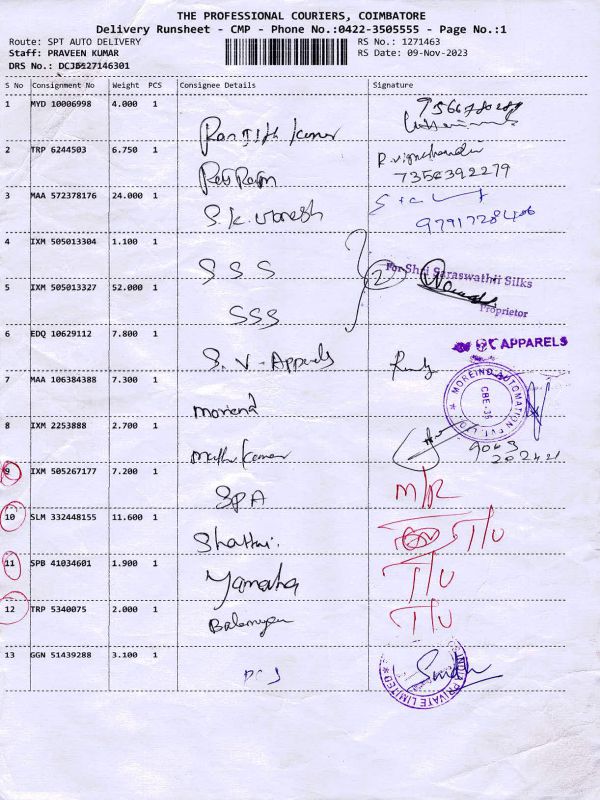 THE PROFESSIONAL COURIERS, COIMBATORE
Delivery Runsheet - CMP - Phone No.:0422-3505555 - Page No.:1
Route: SPT AUTO DELIVERY RS No.: 1271463
Staff: PRAVEEN KUMAR RS Date: 09-Nov-2023
DRS No.: DCJD527146301
S No Consignment No Weight PCS Consignee Details Signature
1 MYD 10006998 4.000 1
Ranjith kumar
2 TRP 6244503 6.750 1
7358392279
3 MAA 572378176 24.000 1
S.K. 
4 IXM 505013304 1.100 1
SSS 2 For Shri Saraswathii Silks
5 IXM 505013327 52.000 1
SSS Proprietor
6 EDQ 10629112 7.800 1
S. V - Apparels APPARELS
7 MAA 106384388 7.300 1
MOREIND AUTOMATION PVT. LTD. CBE-35
8 IXM 2253888 2.700 1
Muthu Kumar
9 IXM 505267177 7.200 1
SPA M/R
10 SLM 332448155 11.600 1
T/U
11 SPB 41034601 1.900 1
Yamaha T/U
12 TRP 5340075 2.000 1
Balamurugan T/U
13 GGN 51439288 3.100 1
PRIVATE LIMITED